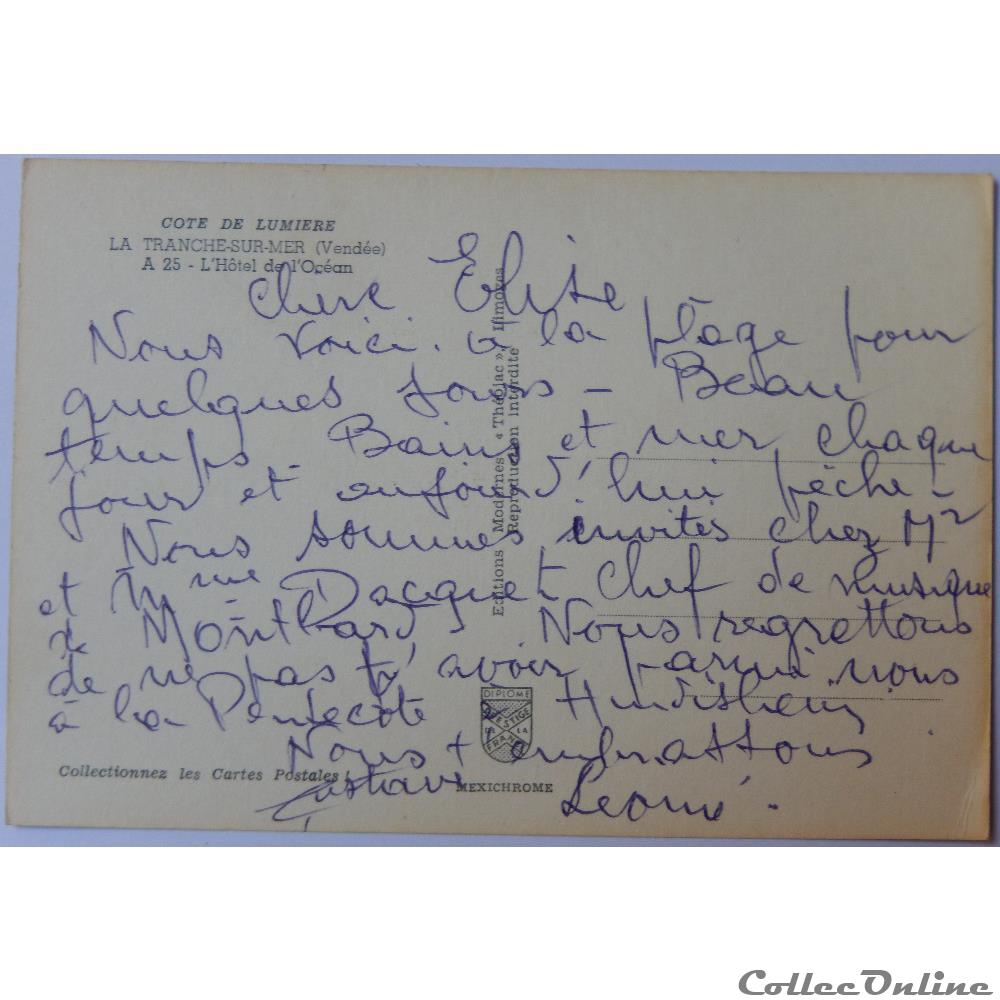 COTE DE LUMIERE
LA TRANCHE-SUR-MER (Vendée)
A 25 - L'Hôtel de l'Océan
Chère Elise
Nous voici à la plage pour
quelques jours - Beau
temps Bains et mer chaque
jour et aujourd'hui pêche -
Nous sommes invités chez Mr
et Mme Dacquet Chef de musique
de Montbard. Nous regrettons
de ne pas t'avoir parmi nous
à la Pentecôte
Nous t'embrassons
Gustave Léonie.
Editions Modernes « Théojac », Limoges
Reproduction interdite
DIPLOME
PRESTIGE
DE LA
FRANCE
Collectionnez les Cartes Postales !
MEXICHROME
CollecOnline